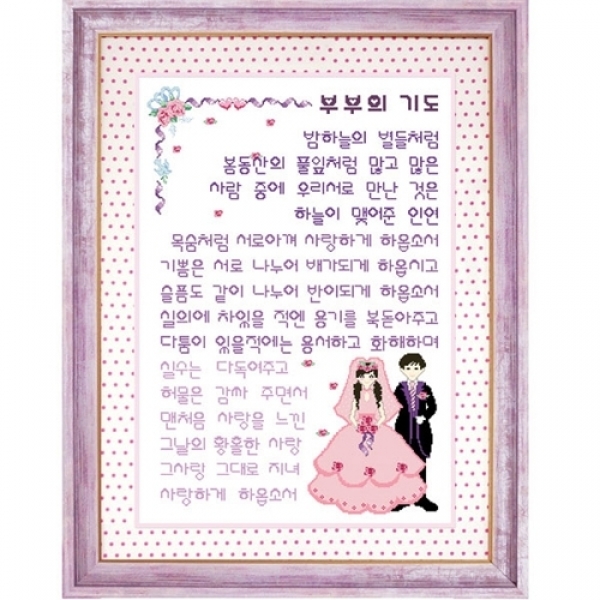 부부의 기도
밤하늘의 별들처럼
봄동산의 풀잎처럼 많고 많은
사람 중에 우리서로 만난 것은
하늘이 맺어준 인연
목숨처럼 서로아껴 사랑하게 하옵소서
기쁨은 서로 나누어 배가되게 하옵시고
슬픔도 같이 나누어 반이되게 하옵소서
실의에 차있을 적엔 용기를 북돋아주고
다툼이 있을적에는 용서하고 화해하며
실수는 다독여주고
허물은 감싸 주면서
맨처음 사랑을 느낀
그날의 황홀한 사랑
그사랑 그대로 지녀
사랑하게 하옵소서